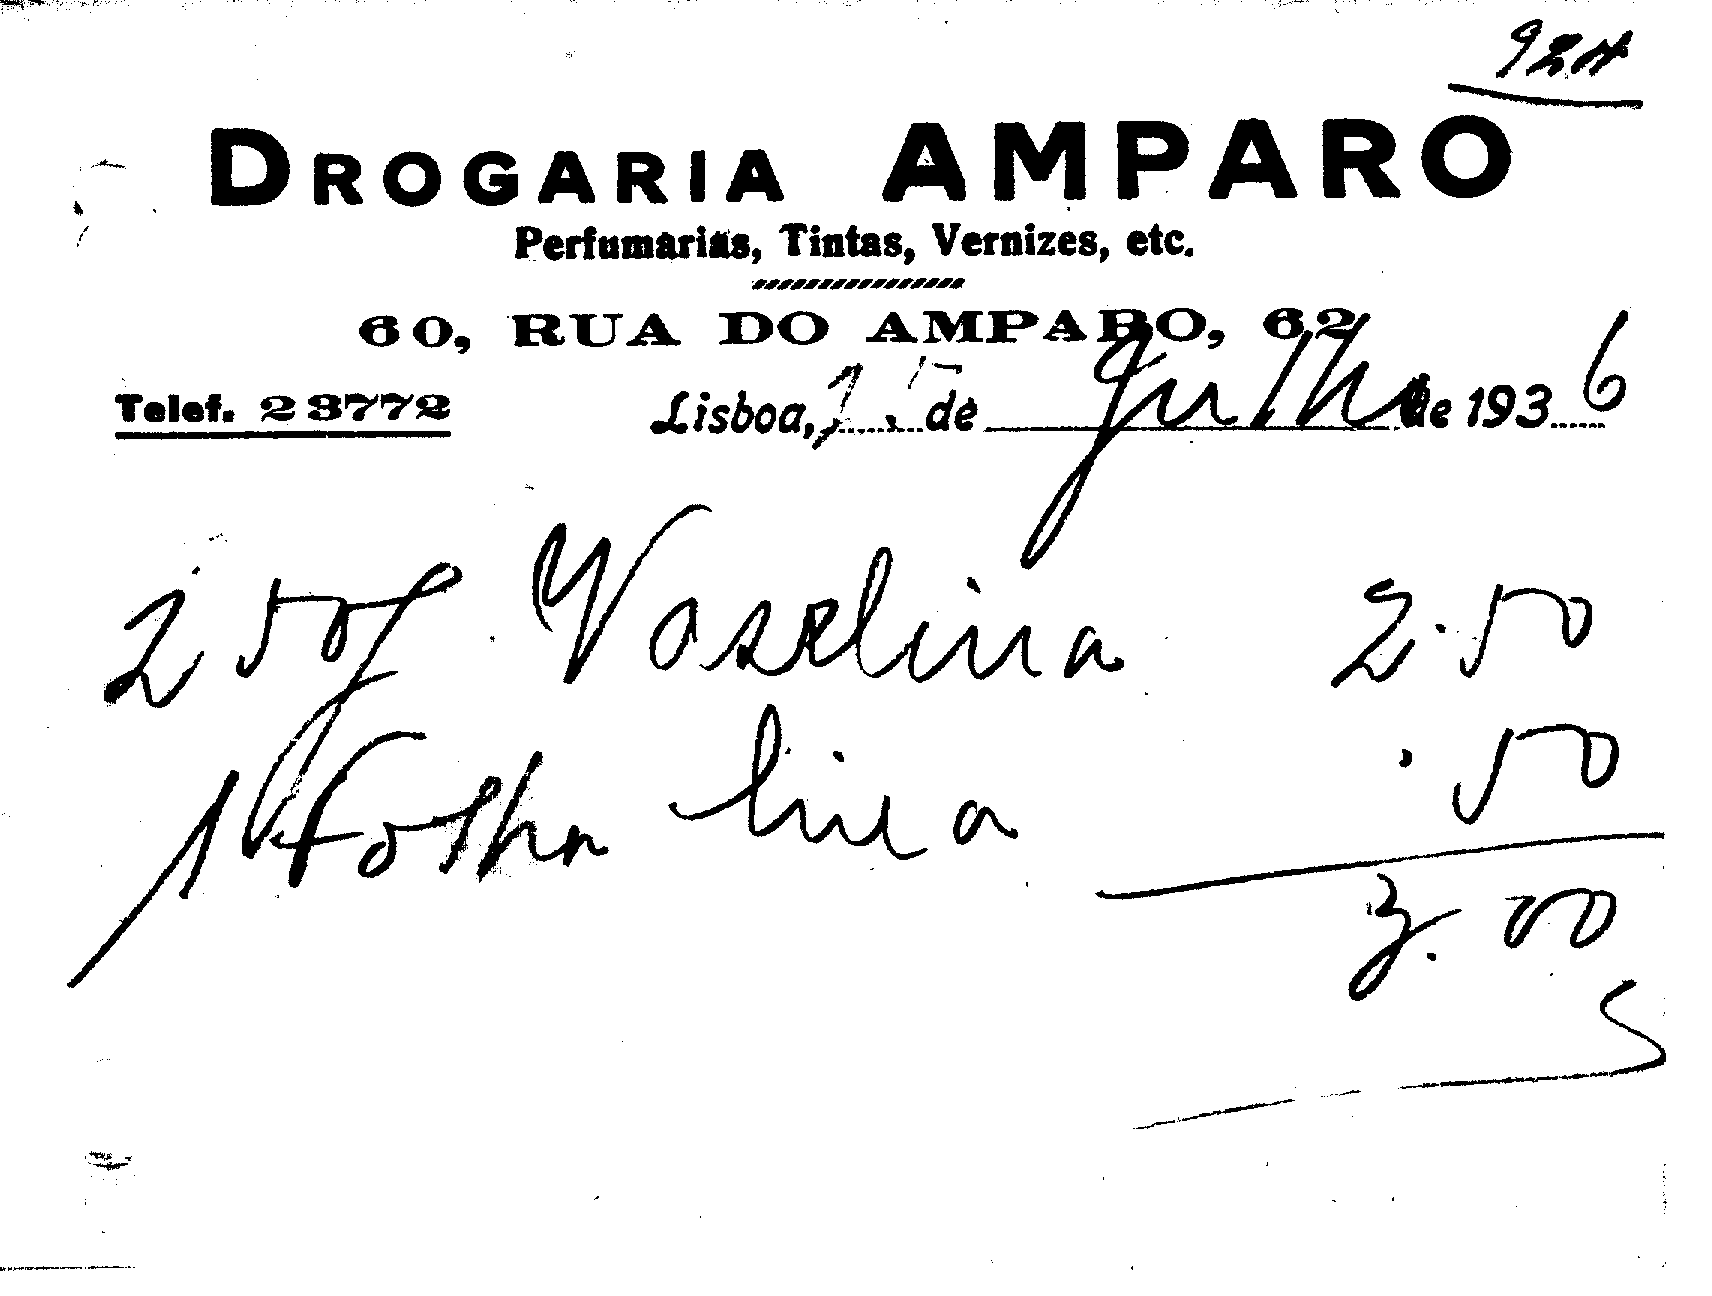 924
DROGARIA AMPARO
Perfumarias, Tintas, Vernizes, etc.
60, RUA DO AMPARO, 62
Telef. 23772 Lisboa, de Julho de 1936
250g Vaselina 2.50
1 Folha lixa .50
3.00